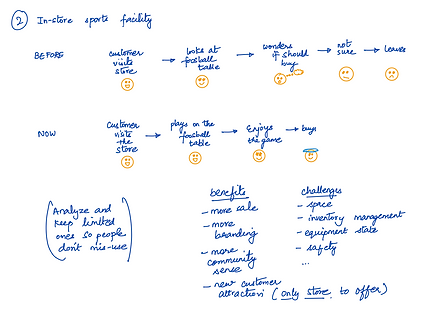 2 In-store sports facility
BEFORE
customer visits store → looks at foosball table → wonders if should buy → not sure → leaves
NOW
Customer visits the store → plays on the foosball table → Enjoys the game → buys
(Analyze and
keep limited
ones so people
don't mis-use)
benefits
- more sale
- more
branding
- more
community
sense
- new customer
attraction (only store to offer)
challenges
- space
- inventory management
- equipment state
- safety
...